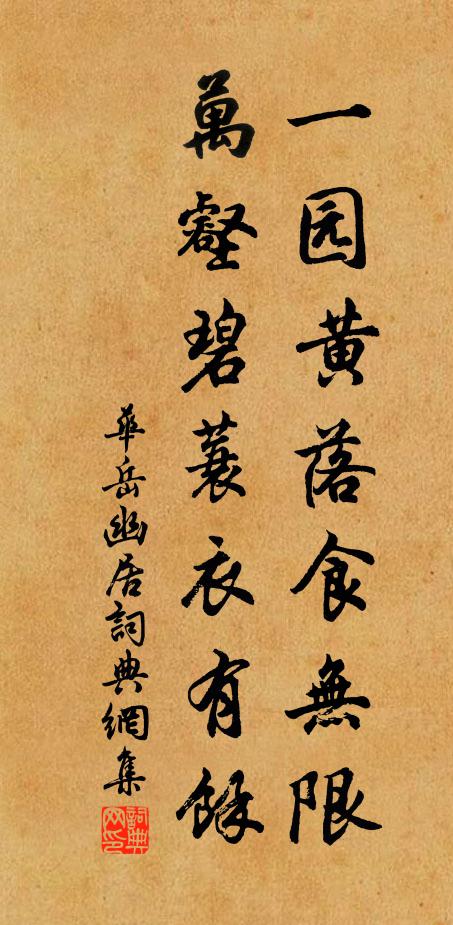 一园黄落食無限
萬壑碧蓑衣有餘
華岳幽居詞典網集
詞典网印